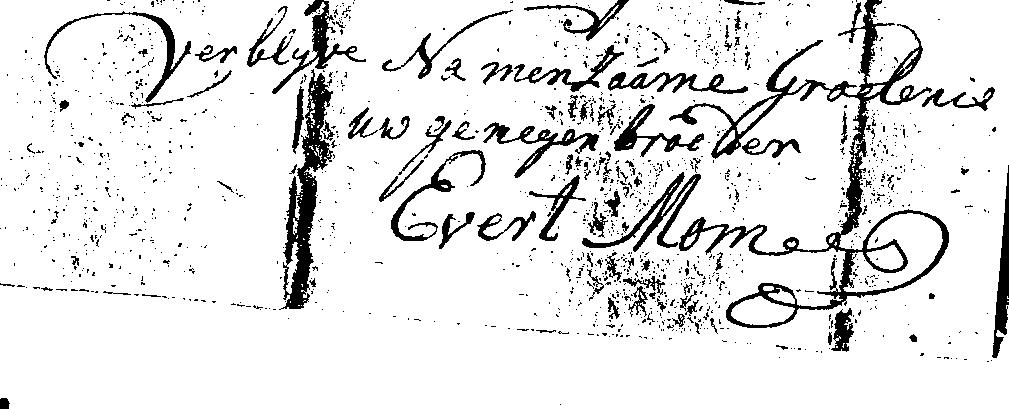 Verblyve Na menzaáme Groetenis
uw genegen broeder
Evert Momees